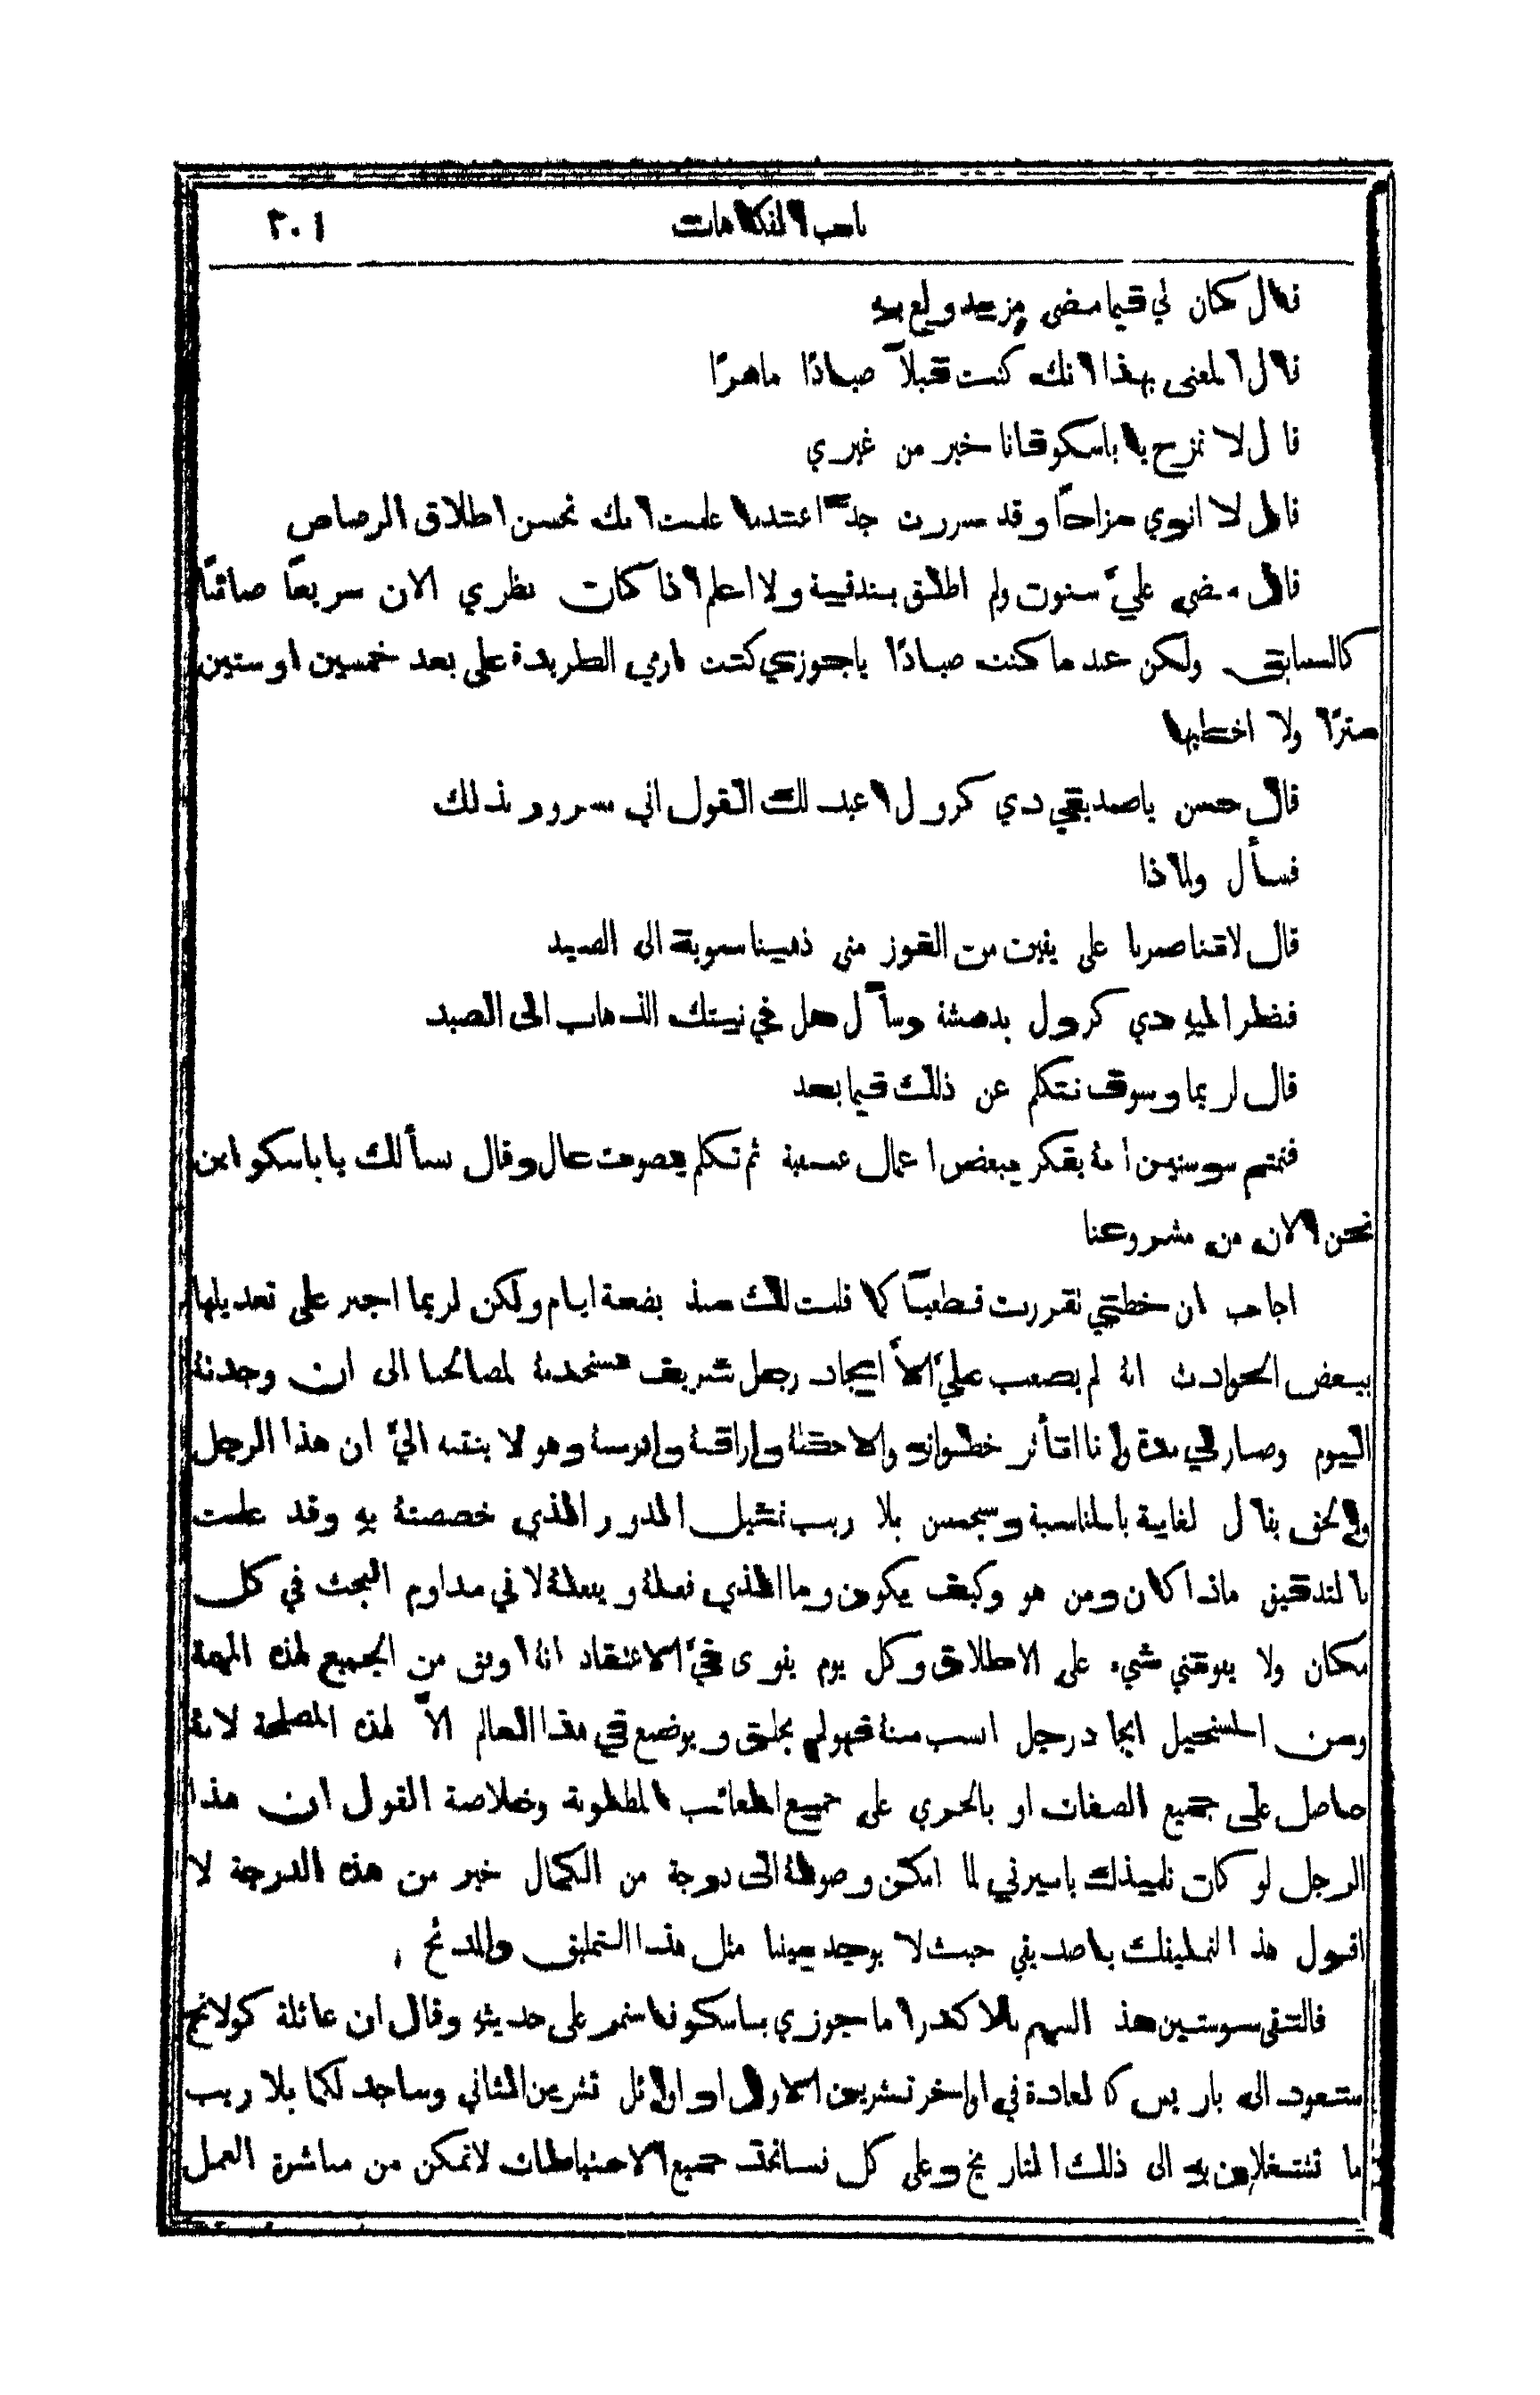 باب الفكاهات ٣٠١
قال كان لي فيما مضى مزيد ولع به
قال المعنى بهذا انك كنت قبلاً صيادًا ماهرًا
قال لا تمزح يا باسكو فانا خبير من غيري
قال لا انوي مزاحاً وقد سررت جدًّا عندما علمت انك تحسن اطلاق الرصاص
قال مضى عليَّ سنون ولم اطلق بندقية ولا اعلم اذا كان نظري الان سريعًا صائبًا
كالسابق ولكن عندما كنت صيادًا ياجوزي كنت ارمي الطريدة على بعد خمسين او ستين
مترًا ولا اخطيها
قال حسن ياصديقي دي كرول اعيد لك القول اني مسرور بذلك
فسأل ولماذا
قال لاقتاصرنا على يقين من الفوز متى ذهبنا سوية الى الصيد
فنظر اليه دي كرول بدهشة وسأل هل في نيتك الذهاب الى الصيد
قال لربما وسوف نتكلم عن ذلك فيما بعد
فتمتم سوستين انه يفكر ببعض اعمال عسقبة ثم تكلم بصوت عال وقال سألك يا باسكو اين
نحن الان من مشروعنا
اجاب ان خطتي تقررت قطعيًّا كما قلت لك منذ بضعة ايام ولكن لربما اجبر على تعديلها
ببعض الحوادث انه لم يصعب عليَّ الاَّ ايجاد رجل شريف نستخدمه لمصالحنا الى ان وجدته
اليوم وصار لي مدة وانا اتأثر خطواته والاحظه واراقبه وادرسه وهو لا ينتبه اليَّ ان هذا الرجل
والحق يقال لغاية بالمناسبة وسيحسن بلا ريب تمثيل الدور الذي خصصته به وقد علمت
بالتدقيق ماذا كان ومن هو وكيف يكون وما الذي فعله ويفعله لاني مداوم البحث في كل
مكان ولا يعوقني شيء على الاطلاق وكل يوم يقوى فيَّ الاعتقاد انه اوفق من الجميع لهذه المهمة
ومن المستحيل ايجاد رجل انسب منه فهو لم يخلق ويوضع في هذا العالم الاَّ لهذه المصلحة لانه
حاصل على جميع الصفات او بالحري على جميع المعائب المطلوبة وخلاصة القول ان هذا
الرجل لو كان تلميذك ياسيرني لما امكن وصوله الى درجة من الكمال خير من هذه الدرجة لا
اقول هذا لتمليقك ياصديقي حيث لا يوجد بيننا مثل هذا التمليق والمدائح
فالتقى سوستين هذا السهم بالاكدر اما جوزي باسكو فاستمر على حديثه وقال ان عائلة كولانج
ستعود الى باريس كالعادة في اواخر تشرين الاول او اوائل تشرين الثاني وساجد لكما بلا ريب
ما تشتغلان به الى ذلك التاريخ وعلى كل نسانخذ جميع الاحتياطات لاتمكن من مباشرة العمل